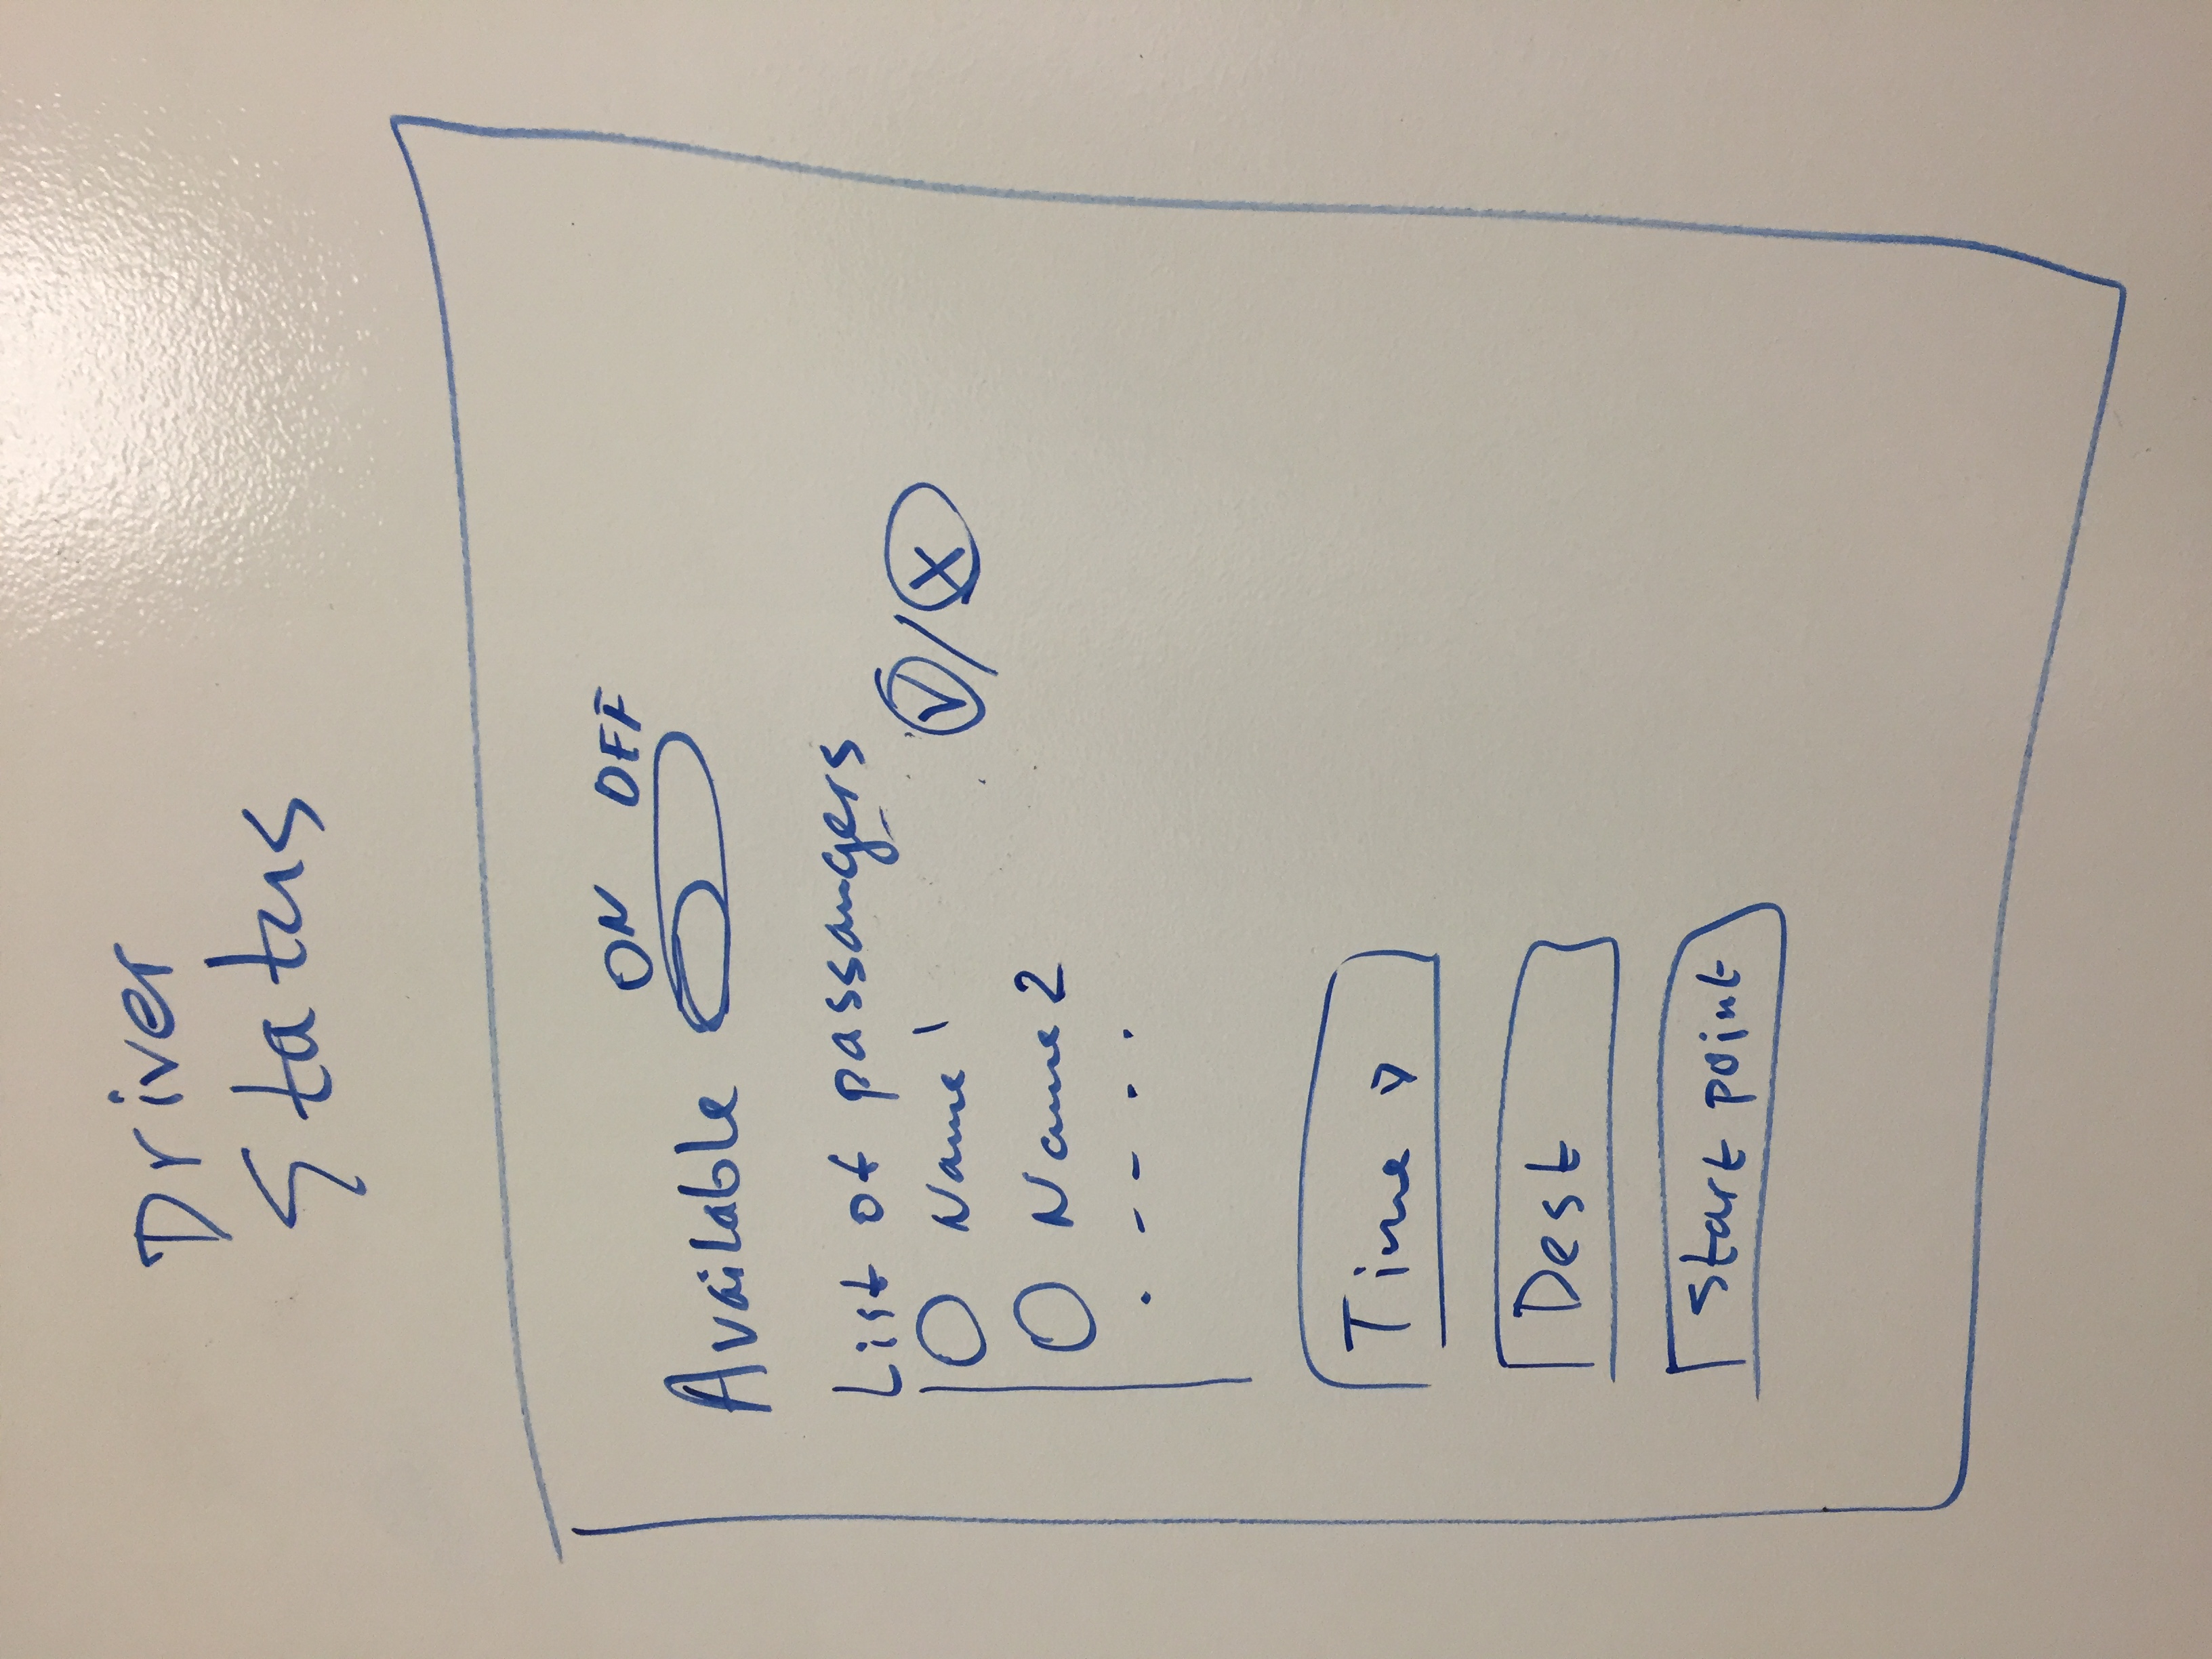 Driver
Status
ON OFF
Available
List of passangers
Name 1
✓/X
Name 2
. - - . .
Time ▽
Dest
Start point